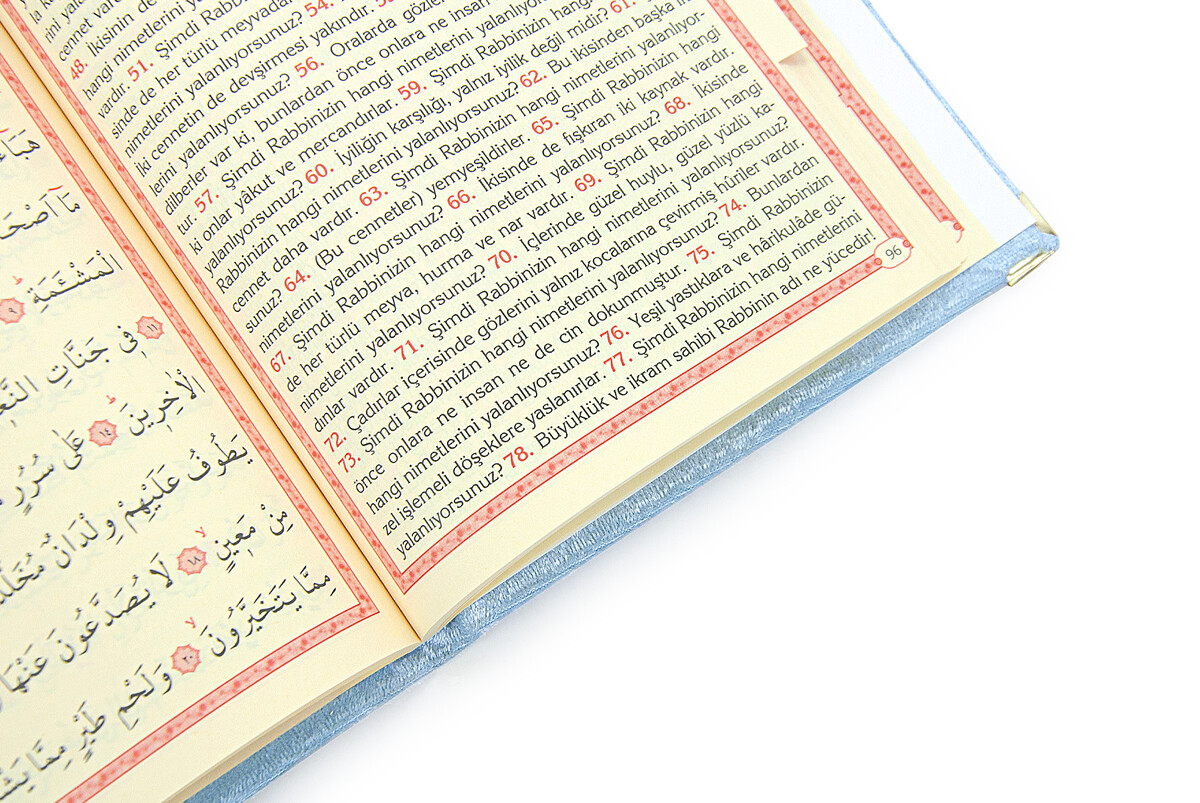 cennet var
48. İkisinin de
hangi nimetlerini
vardır. 51. Şimdi Rabbinizin
sinde de her türlü meyvadan
nimetlerini yalanlıyorsunuz? 54.
iki cennetin de devşirmesi yakındır.
lerini yalanlıyorsunuz? 56. Oralarda
dilberler var ki, bunlardan önce onlara ne insan
tur. 57. Şimdi Rabbinizin hangi nimetlerini
ki onlar yâkut ve mercandırlar. 59. Şimdi Rabbinizin
yalanlıyorsunuz? 60. İyiliğin karşılığı, yalnız iyilik değil midir? 61.
Rabbinizin hangi nimetlerini yalanlıyorsunuz? 62. Bu ikisinden başka
cennet daha vardır. 63. Şimdi Rabbinizin hangi nimetlerini yalanlıyor-
sunuz? 64. (Bu cennetler) yemyeşildirler. 65. Şimdi Rabbinizin hangi
nimetlerini yalanlıyorsunuz? 66. İkisinde de fışkıran iki kaynak vardır.
67. Şimdi Rabbinizin hangi nimetlerini yalanlıyorsunuz? 68. İkisinde
de her türlü meyva, hurma ve nar vardır. 69. Şimdi Rabbinizin hangi
nimetlerini yalanlıyorsunuz? 70. İçlerinde güzel huylu, güzel yüzlü ka-
dınlar vardır. 71. Şimdi Rabbinizin hangi nimetlerini yalanlıyorsunuz?
72. Çadırlar içerisinde gözlerini yalnız kocalarına çevirmiş hûriler vardır.
73. Şimdi Rabbinizin hangi nimetlerini yalanlıyorsunuz? 74. Bunlardan
önce onlara ne insan ne de cin dokunmuştur. 75. Şimdi Rabbinizin
hangi nimetlerini yalanlıyorsunuz? 76. Yeşil yastıklara ve hârikulâde gü-
zel işlemeli döşeklere yaslanırlar. 77. Şimdi Rabbinizin hangi nimetlerini
yalanlıyorsunuz? 78. Büyüklük ve ikram sahibi Rabbinin adı ne yücedir!
96
مَٓا اَصْحَابُ
الْمَشْـَٔمَةِ ٩
١١ ف۪ي جَنَّاتِ
الْاٰخِر۪ينَ ١٤ عَلٰى سُرُرٍ
يَطُوفُ عَلَيْهِمْ وِلْدَانٌ
مِنْ مَع۪ينٍ ١٨ لَا يُصَدَّعُونَ عَنْهَا
مِمَّا يَتَخَيَّرُونَ ٢٠ وَلَحْمِ طَيْرٍ مِمَّا